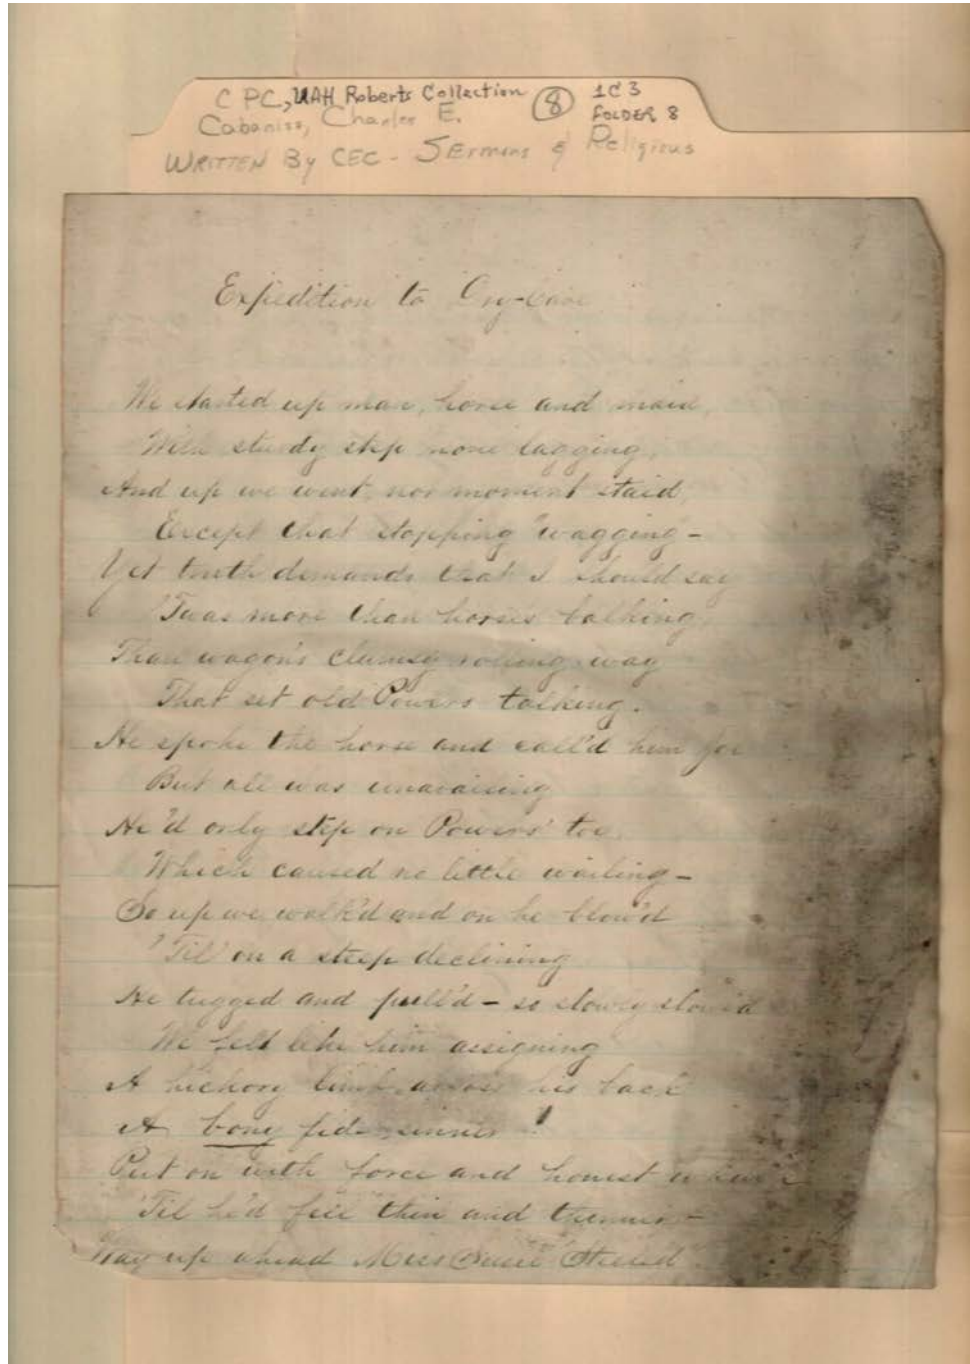 C PC, UAH Roberts Collection 8 1C3
Cabaniss, Charles E. FOLDER 8
WRITTEN By CEC - SErmons & Religious
Expedition to Dry-Cave
We started up man, horse and maid,
With sturdy step none lagging,
And up we went, nor moment staid,
Except that stopping "wagging -
Yet truth demands that I should say
'Twas more than horse's balking,
Than wagon's clumsy rolling way
That set old Powers talking.
He spoke the horse and call'd him for
But all was unavailing
He'd only step on Powers' toe
Which caused no little wailing -
So up we walk'd and on he blow'd
'Til on a steep declining
He tugged and pull'd - so slowly slow'd
We felt like him assigning
A hickory limb across his back
A bony fid- sinner!
Put on with force and honest
'Til he'd feel thin and thinner -
Way up ahead Miss Susie